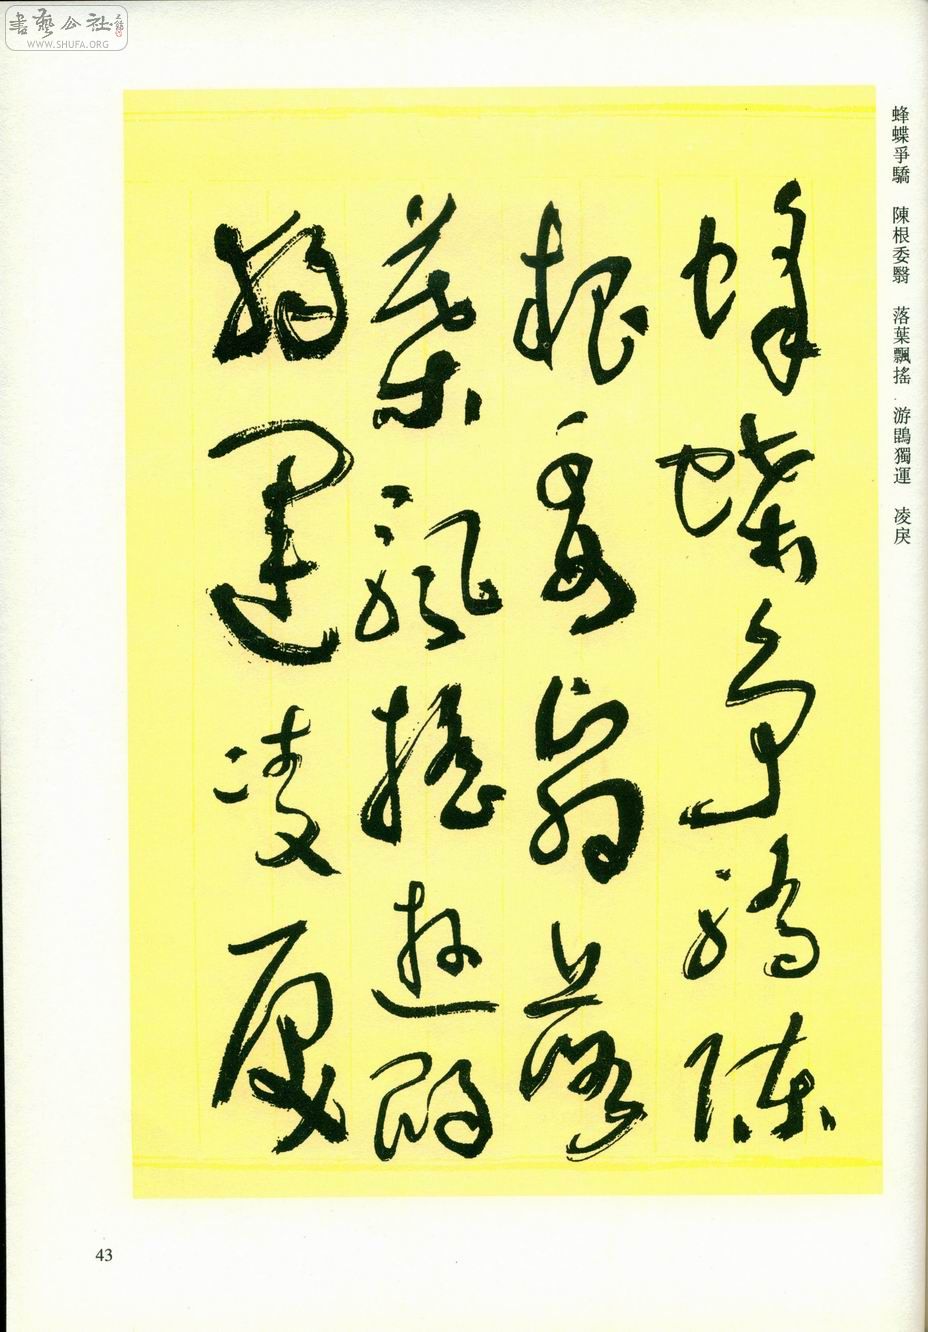 書藝公社
WWW.SHUFA.ORG
蜂蝶爭驕 陳根委翳 落葉飄搖 游鵾獨運 凌戾
蜂蝶爭驕陳
根委翳落
葉飄搖遊鵾
獨運凌戾
43